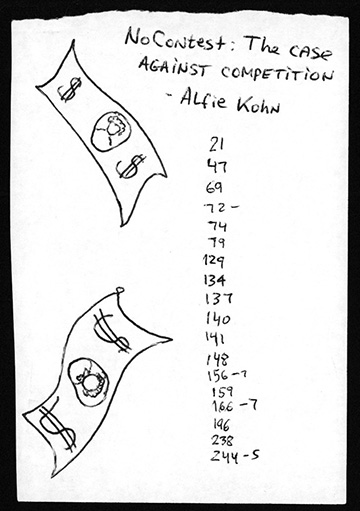 No Contest: The case
Against competition
- Alfie Kohn
$
$
21
47
69
72 -
74
79
129
134
137
140
141
148
156 - 7
159
166 - 7
196
238
244 - 5
$
$